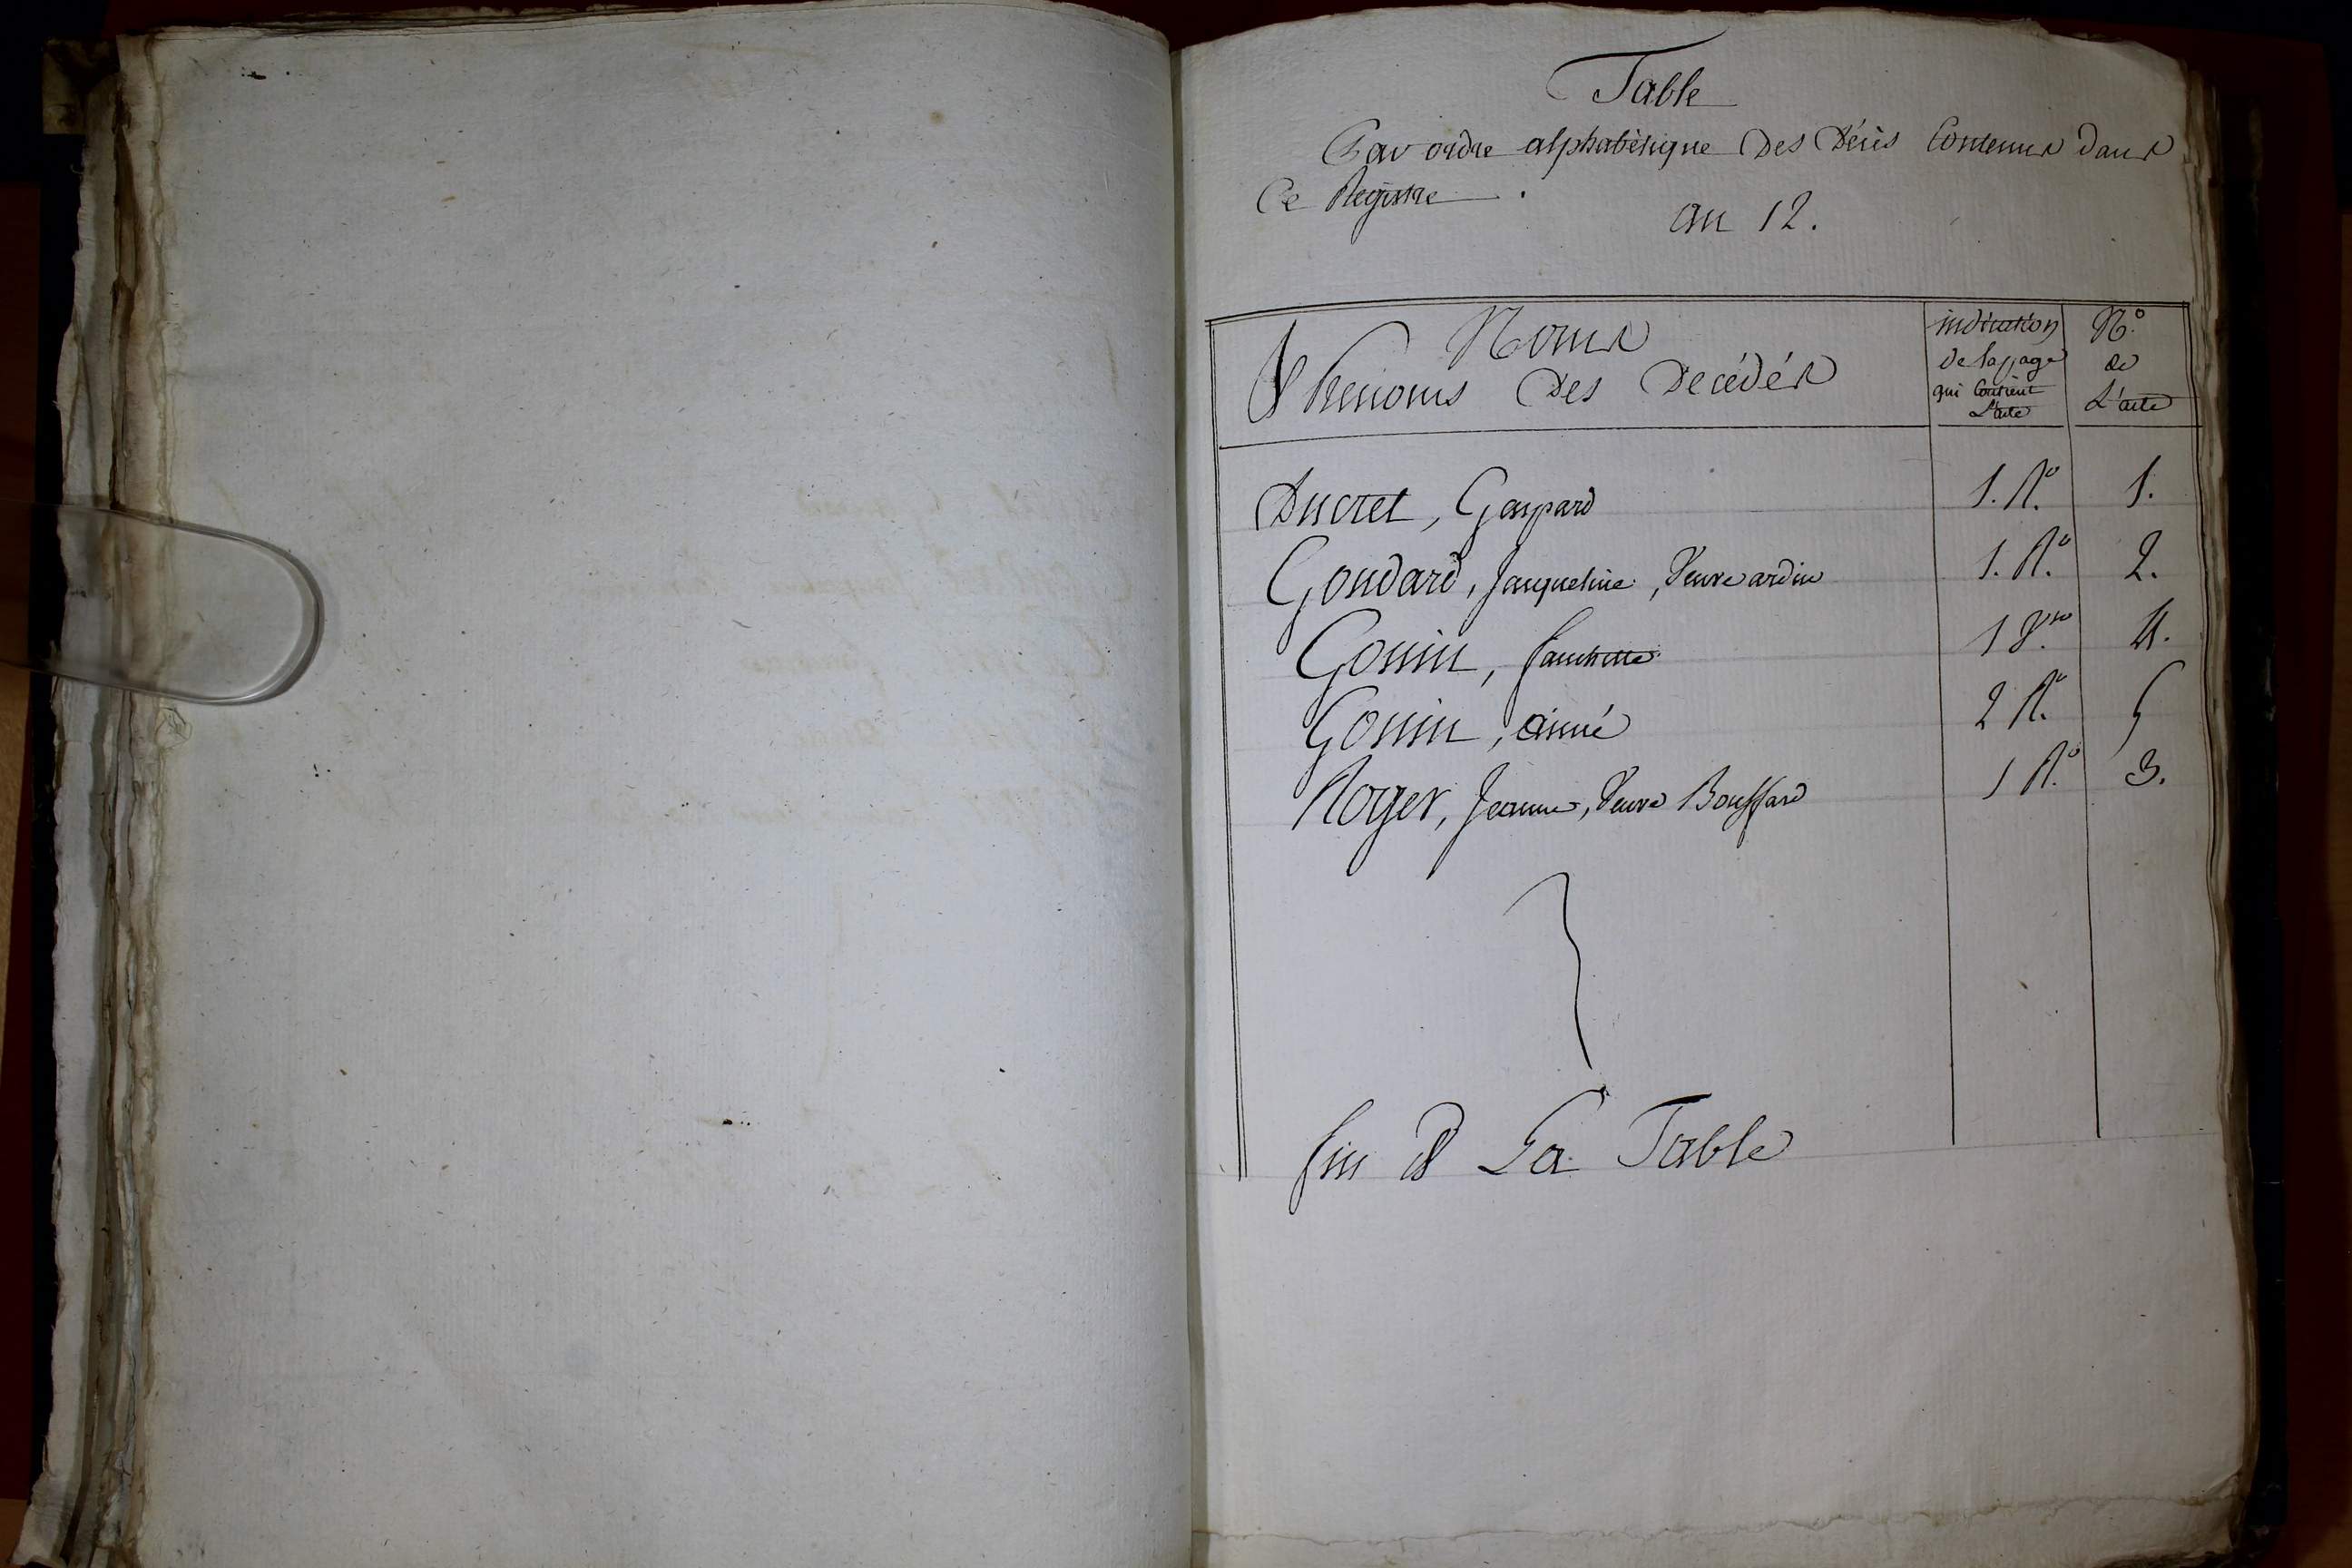 Table
Par ordre alphabètique des décès Contenus dans
Ce Registre .
an 12.
Noms
& Prenoms des Decédés
indication
de la page
qui Contient
L'acte
N.o
de
L'acte
Ducret, Gaspard 1. R.o 1.
Goudard, Jaqueline, Veuve ardin 1. R.o 2.
Gonin, fanchette 1 V.so 4.
Gonin, aimé 2 R.o 5
Roger, Jeanne, Veuve Bouffard 1 R.o 3.
fin de La Table